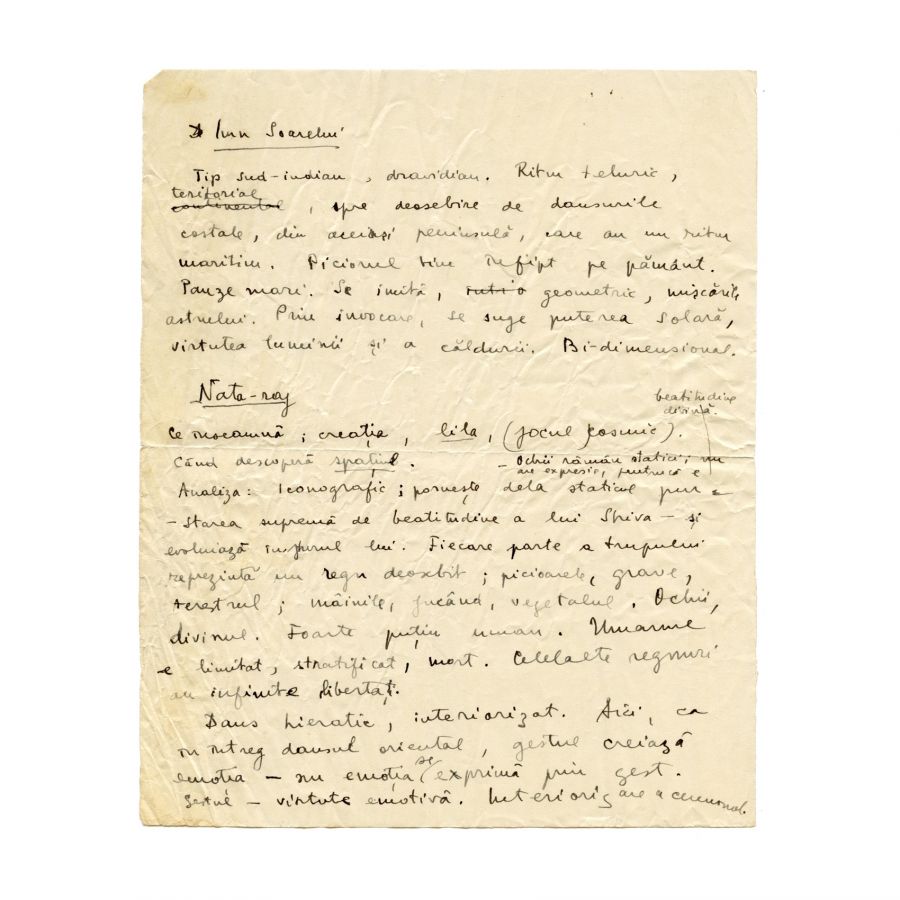 Imn Soarelui
Tip sud-indian, dravidian. Ritm teluric,
teritorial
continental, spre deosebire de dansurile
costale, din aceiași peninsulă, care au un ritm
maritim. Piciorul bine înfipt pe pământ.
Pauze mari. Se imită, geometric, mișcările
astrului. Prin invocare, se suge puterea solară,
virtutea luminii și a căldurii. Bi-dimensional.
Nata-raj
beatitudine
divină.
Ce înseamnă; creația, lila, (jocul cosmic).
Când descoperă spațiul. - Ochii rămân statici; nu
au expresie, pentrucă e
Analiza: Iconografic; pornește dela staticul pur =
- starea supremă de beatitudine a lui Shiva - și
evoluiază înjurul lui. Fiecare parte a trupului
reprezintă un regn deosebit; picioarele, grave,
terestrul; mâinile, jucând, vegetalul. Ochii,
divinul. Foarte puțin uman. Umanul
e limitat, stratificat, mort. Celelalte regnuri
au infinite libertăți.
Dans hieratic, interiorizat. Aici, ca
în întreg dansul oriental, gestul creiază
emoția - nu emoția se exprimă prin gest.
Gestul - virtute emotivă. Interiorizare a ceremonial.